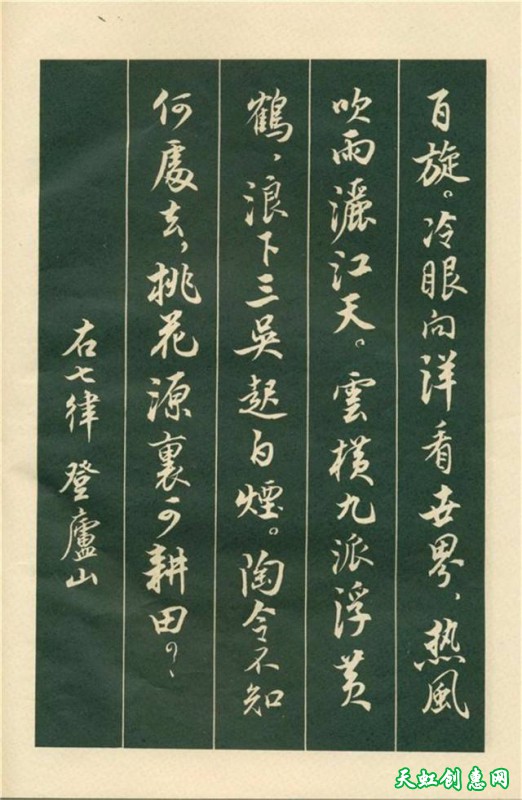 百旋。冷眼向洋看世界，热風
吹雨灑江天。雲橫九派浮黄
鶴，浪下三吳起白煙。陶令不知
何處去，桃花源裏可耕田？
右七律 登廬山
天虹创惠网